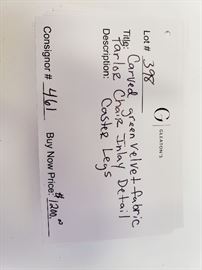 G | GLEATON'S
Lot # 398
Title: Carved green velvet fabric
Parlor Chair Inlay Detail
Description: Caster Legs
Consignor # 461
Buy Now Price: $1200.00